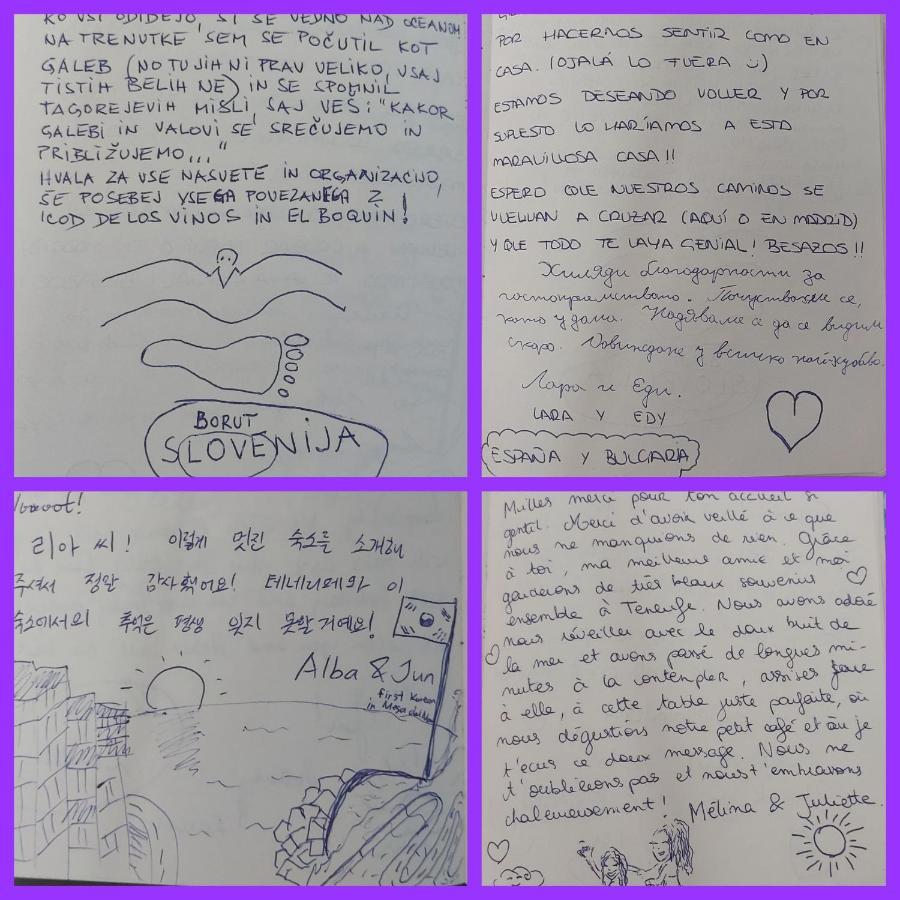 KO VSI ODIDEJO, SI ŠE VEDNO NAD OCEANOM.
NA TRENUTKE SEM SE POČUTIL KOT
GALEB (NO TUJIH NI PRAV VELIKO, VSAJ
TISTIH BELIH NE) IN SE SPOMNIL
TAGOREJEVIH MISLI, SAJ VEŠ: "KAKOR
GALEBI IN VALOVI SE SREČUJEMO IN
PRIBLIŽUJEMO..."
HVALA ZA VSE NASVETE IN ORGANIZACIJO,
ŠE POSEBEJ VSEGA POVEZANEGA Z
ICOD DE LOS VINOS IN EL BOQUIN!
BORUT
SLOVENIJA
POR HACERNOS SENTIR COMO EN
CASA. (OJALÁ LO FUERA :))
ESTAMOS DESEANDO VOLVER Y POR
SUPUESTO LO HARÍAMOS A ESTA
MARAVILLOSA CASA!!
ESPERO QUE NUESTROS CAMINOS SE
VUELVAN A CRUZAR (AQUÍ O EN MADRID)
Y QUE TODO TE VAYA GENIAL! BESAZOS!!
Хиляди благодарности за
гостоприемството. Почувствахме се,
като у дома. Надяваме се да се видим
скоро. Довиждане и всичко най-хубаво.
Лара и Еди.
LARA Y EDY
ESPAÑA Y BULGARIA
리아 씨! 이렇게 멋진 숙소를 소개해
주셔서 정말 감사했어요! 테네리페와 이
숙소에서의 추억은 평생 잊지 못할 거예요!
Alba & Jun
first Korean
in Mesa del Mar
Milles merci pour ton accueil si
gentil. Merci d'avoir veillé à ce que
nous ne manquions de rien. Grâce
à toi, ma meilleure amie et moi
garderons de très beaux souvenirs
ensemble à Tenerife. Nous avons adoré
nous réveiller avec le doux bruit de
la mer et avons passé de longues mi-
nutes à la contempler, assises face
à elle, à cette table juste parfaite, où
nous dégustions notre petit café et où je
t'écris ce doux message. Nous ne
t'oublierons pas et nous t'embrassons
chaleureusement! Mélina & Juliette.